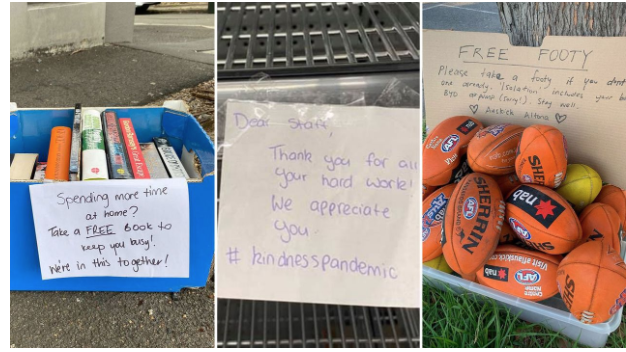 Spending more time
at home?
Take a FREE Book to
keep you busy!
We're in this together!
Dear Staff,
Thank you for all
your hard work!
We appreciate
you.
# kindnesspandemic
FREE FOOTY
Please take a footy if you don't
one already. 'Isolation' includes your b
BYO (sorry!). Stay well.
♡ Auskick Altona ♡
AFL
SHERRIN
SHERRIN
AFL
nab
AFL
nab
Visit aflauskick.co
AFL
SHERRIN